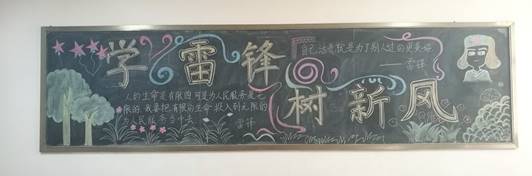 学雷锋
树新风
自己活着就是为了别人过的更美好
——雷锋
人的生命是有限的可是为人民服务是无
限的,我要把有限的生命投入到无限的
为人民服务当中去
雷锋